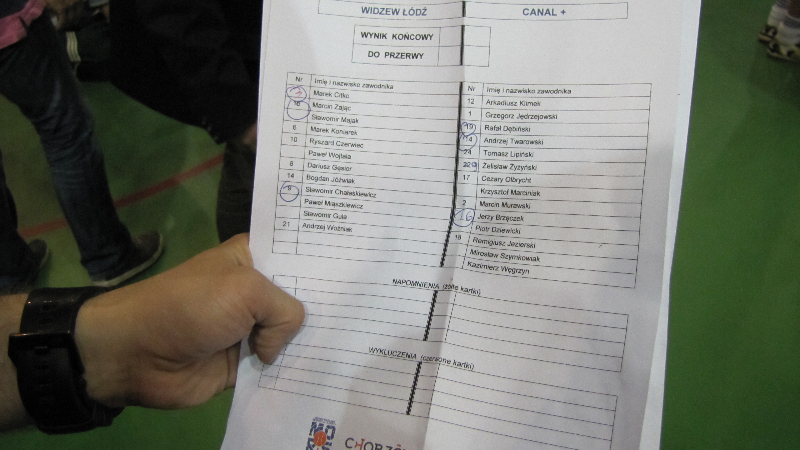 WIDZEW ŁÓDŹ CANAL +
WYNIK KOŃCOWY
DO PRZERWY
Nr Imię i nazwisko zawodnika
Marek Citko
16 Marcin Zając
Sławomir Majak
6 Marek Koniarek
10 Ryszard Czerwiec
Paweł Wojtala
8 Dariusz Gęsior
14 Bogdan Jóźwiak
9 Sławomir Chałaśkiewicz
Paweł Miąszkiewicz
Sławomir Gula
21 Andrzej Woźniak
Nr Imię i nazwisko zawodnika
12 Arkadiusz Klimek
1 Grzegorz Jędrzejowski
19 Rafał Dębiński
14 Andrzej Twarowski
24 Tomasz Lipiński
Żelisław Żyżyński
17 Cezary Olbrycht
Krzysztof Marciniak
2 Marcin Murawski
16 Jerzy Brzęczek
Piotr Dziewicki
18 Remigiusz Jezierski
Mirosław Szymkowiak
Kazimierz Węgrzyn
NAPOMNIENIA (żółte kartki)
WYKLUCZENIA (czerwone kartki)